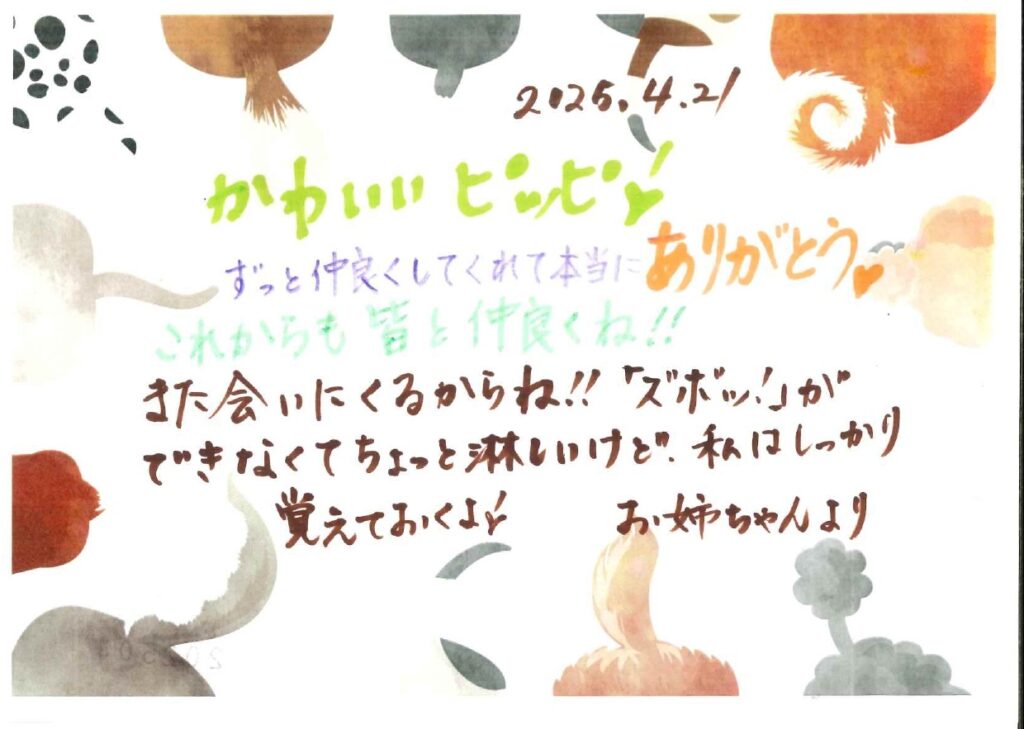 2025.4.21
かわいいピッピ!
ずっと仲良くしてくれて本当にありがとう
これからも皆と仲良くね!!
また会いにくるからね!!「ズボッ!」が
できなくてちょっと淋しいけど、私はしっかり
覚えておくよ!
お姉ちゃんより